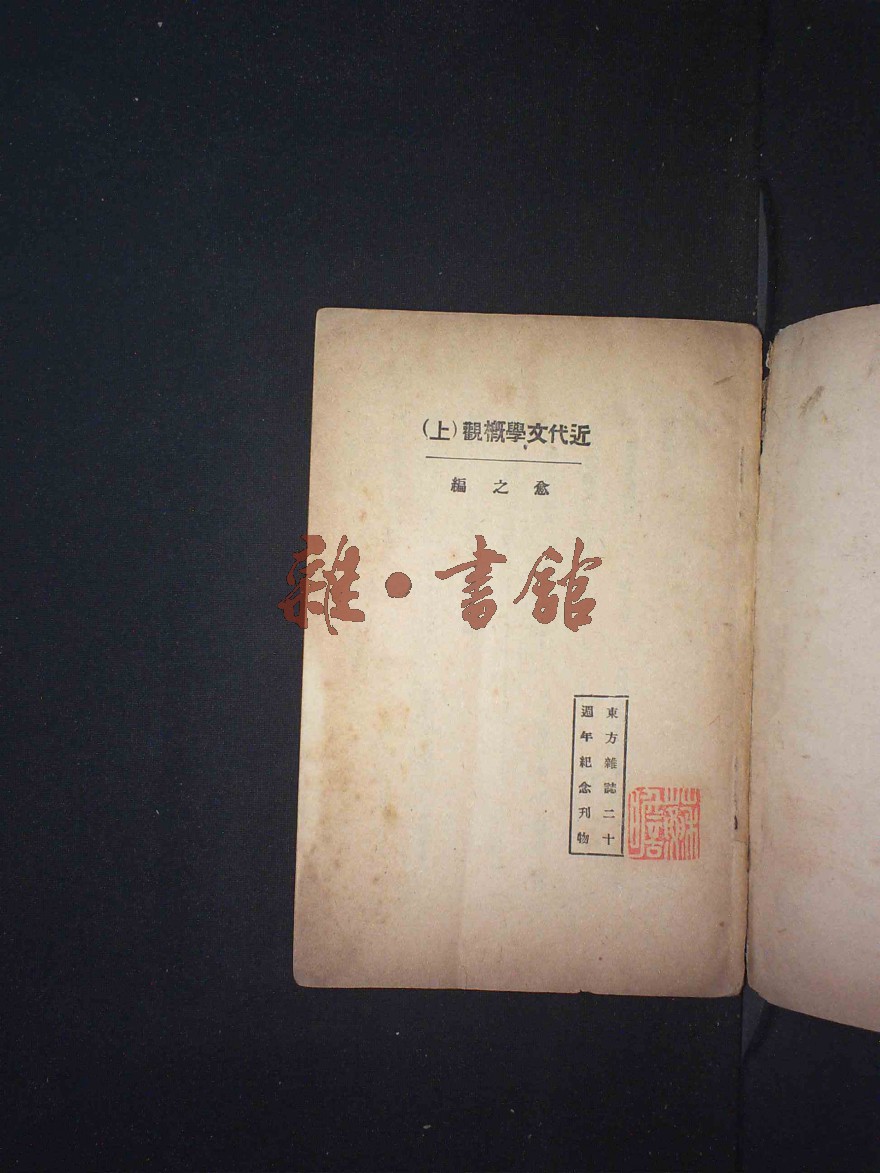 近代文學概觀(上)
愈之編
雜•書館
東方雜誌二十
週年紀念刊物